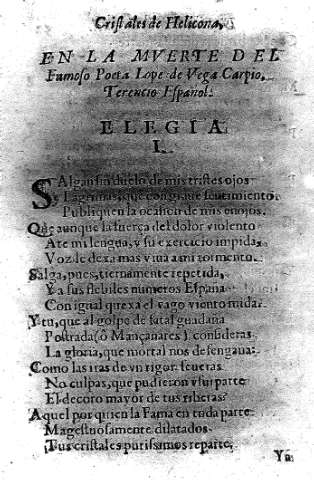 Cristales de Helicona,
EN LA MVERTE DEL
Famoso Poeta Lope de Vega Carpio,
Terencio Español.
ELEGIA
I.
SAlgan sin duelo de mis tristes ojos
Lagrimas, que con graue sentimiento
Publiquen la ocasion de mis enojos.
Que aunque la fuerça del dolor violento
Ate mi lengua, y su exercicio impida,
Voz le dexa mas viua a mi tormento.
Salga, pues, tiernamente repetida,
Y a sus flebiles numeros España
Con igual quexa el vago viento mida.
Y tu, que al golpe de fatal guadaña
Postrada (ò Mançanares) consideras
La gloria, que mortal nos desengaña:
Como las iras de vn rigor seueras
No culpas, que pudieron vsurparte
El decoro mayor de tus riberas?
Aquel por quien la Fama en toda parte
Magestuosamente dilatados
Tus cristales purissimos reparte,
Ya